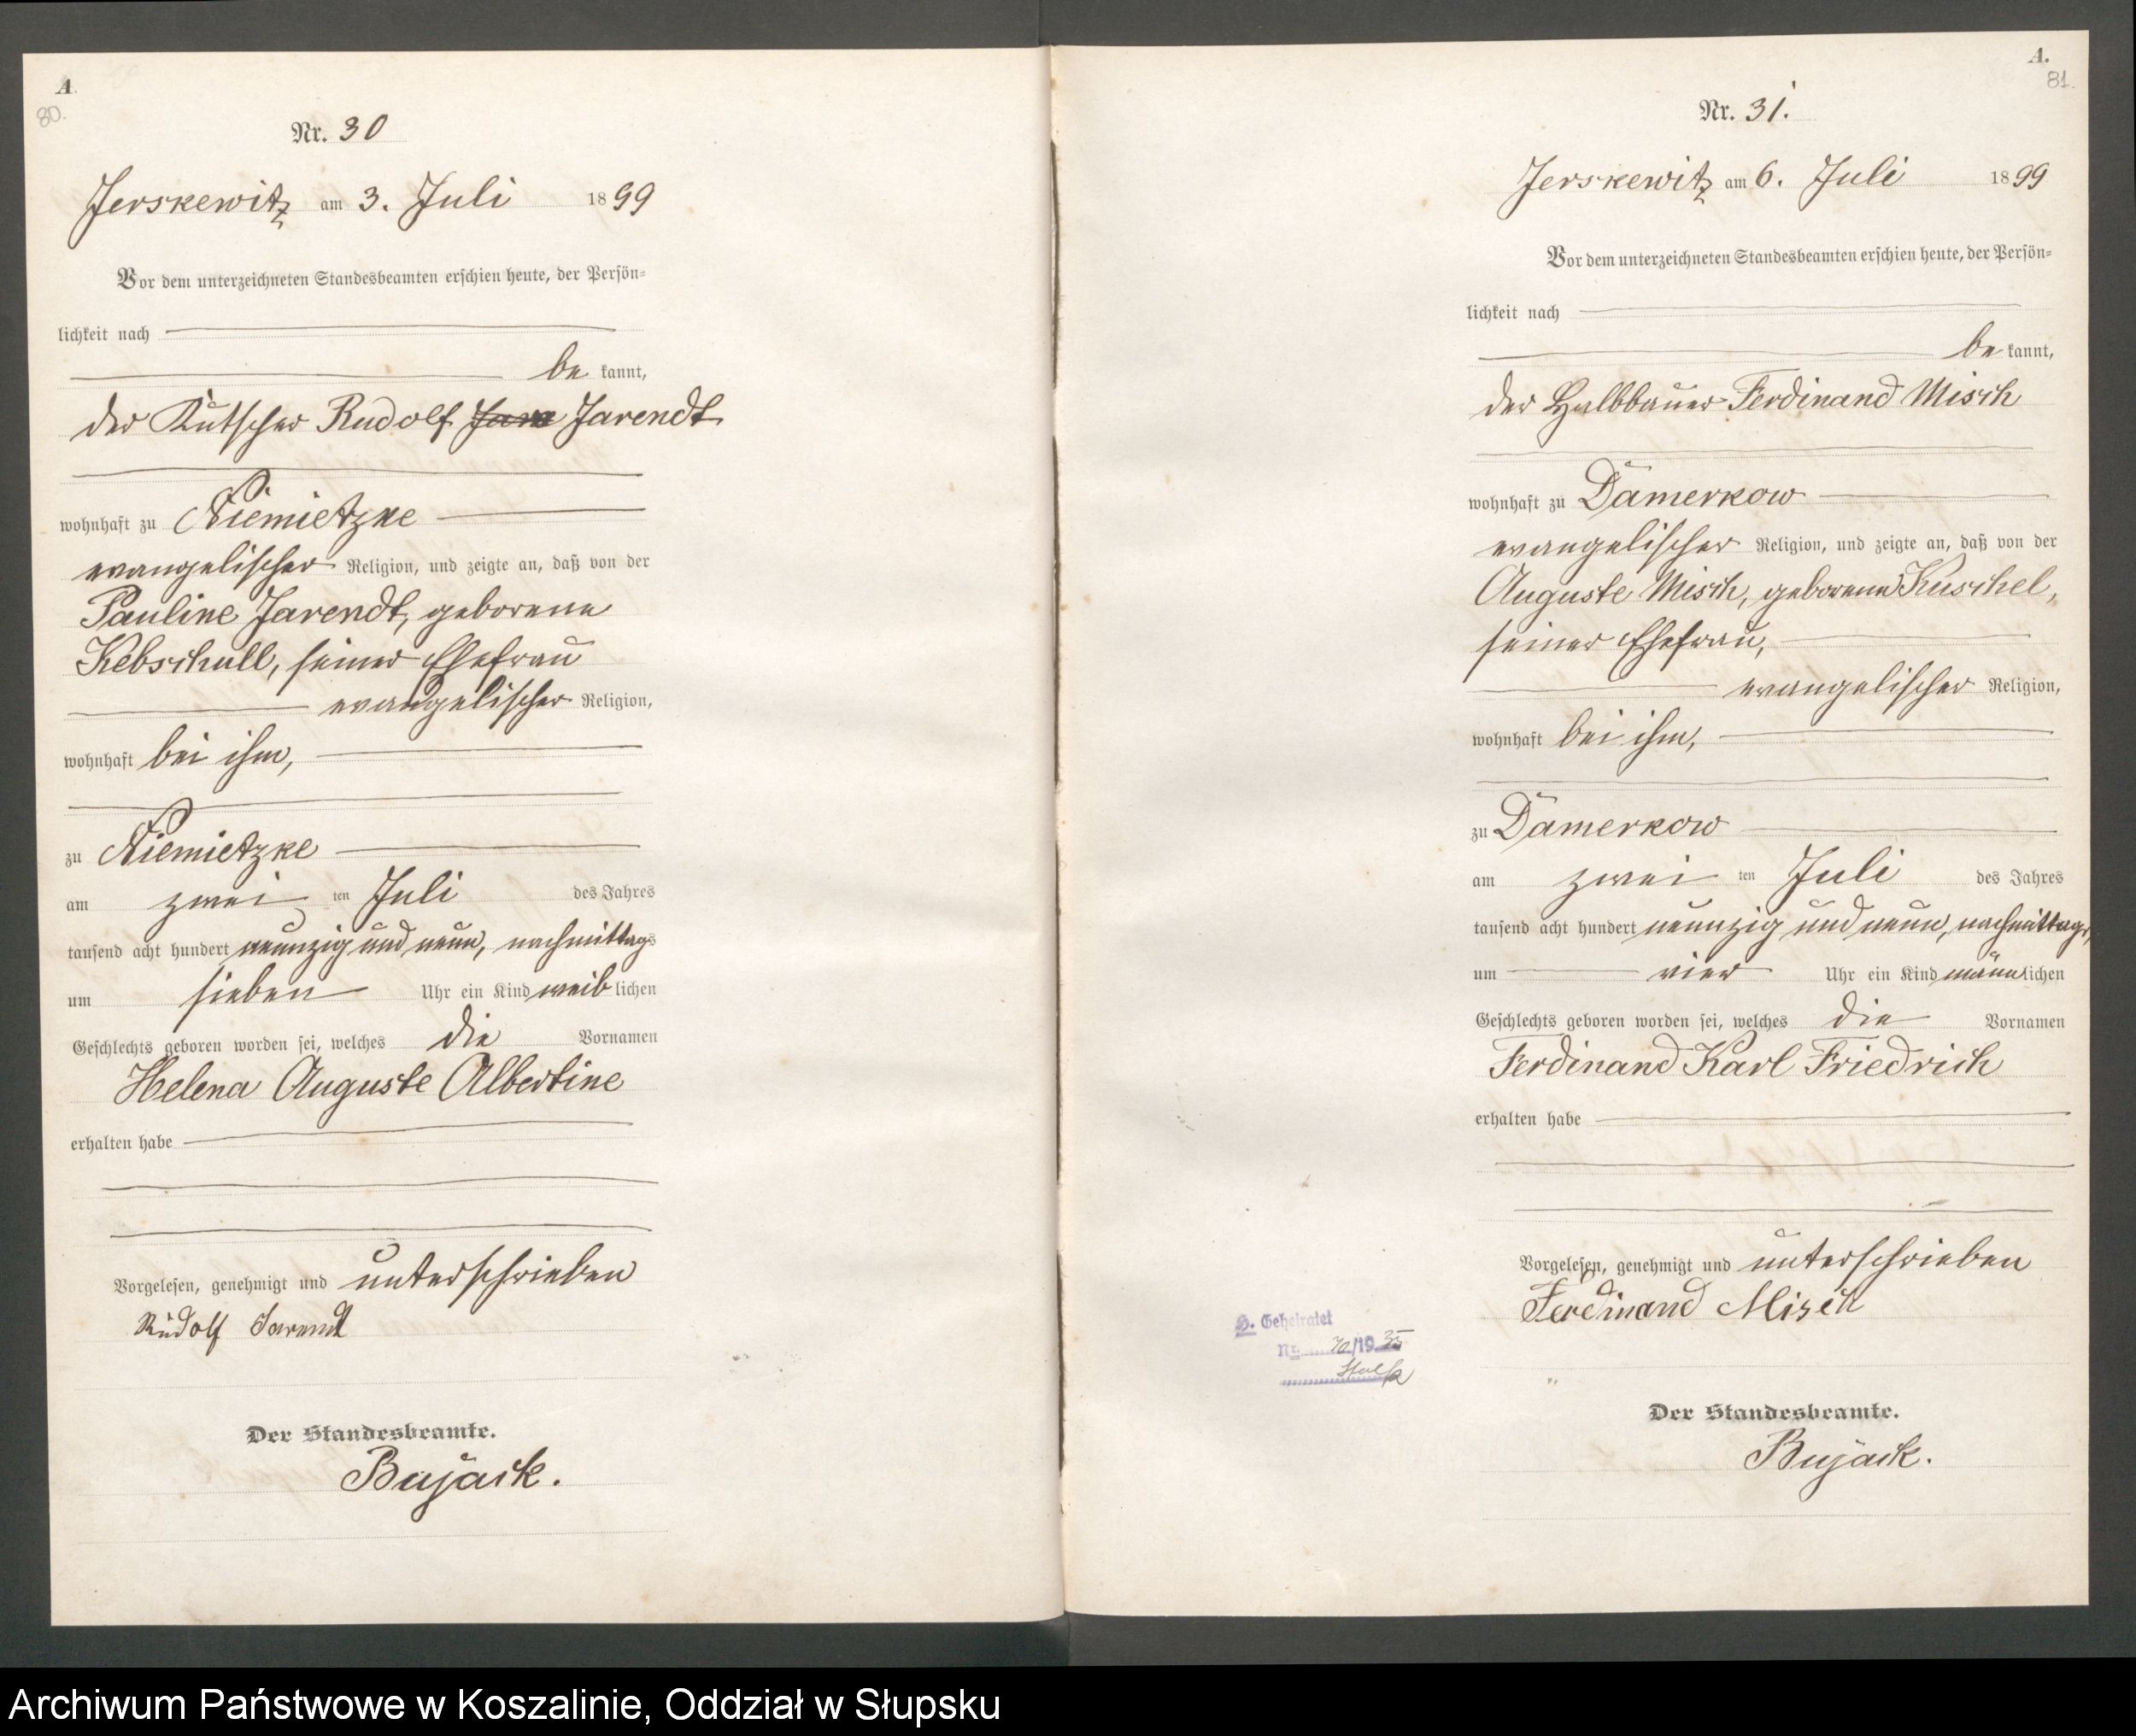 A
80.
Nr. 30
Jerskewitz am 3. Juli 1899
Vor dem unterzeichneten Standesbeamten erschien heute, der Persön-
lichkeit nach
be kannt,
der Kutscher Rudolf Jare Jarendt
wohnhaft zu Niemietzke
evangelischer Religion, und zeigte an, daß von der
Pauline Jarendt, geborene
Kebschull, seiner Ehefrau
evangelischer Religion,
wohnhaft bei ihm,
zu Niemietzke
am zwei ten Juli des Jahres
tausend acht hundert neunzig und neun, nachmittags
um sieben Uhr ein Kind weiblichen
Geschlechts geboren worden sei, welches die Vornamen
Helena Auguste Albertine
erhalten habe
Vorgelesen, genehmigt und unterschrieben
Rudolf Jarendt
Der Standesbeamte.
Bujack.
A.
81.
Nr. 31.
Jerskewitz am 6. Juli 1899
Vor dem unterzeichneten Standesbeamten erschien heute, der Persön-
lichkeit nach
be kannt,
der Halbbauer Ferdinand Misch
wohnhaft zu Damerkow
evangelischer Religion, und zeigte an, daß von der
Auguste Misch, geborene Kuschel,
seiner Ehefrau,
evangelischer Religion,
wohnhaft bei ihm,
zu Damerkow
am zwei ten Juli des Jahres
tausend acht hundert neunzig und neun, nachmittags,
um vier Uhr ein Kind männlichen
Geschlechts geboren worden sei, welches die Vornamen
Ferdinand Karl Friedrich
erhalten habe
Vorgelesen, genehmigt und unterschrieben
Ferdinand Misch
Geheiratet
Nr. /1935
Der Standesbeamte.
Bujack.
Archiwum Państwowe w Koszalinie, Oddział w Słupsku